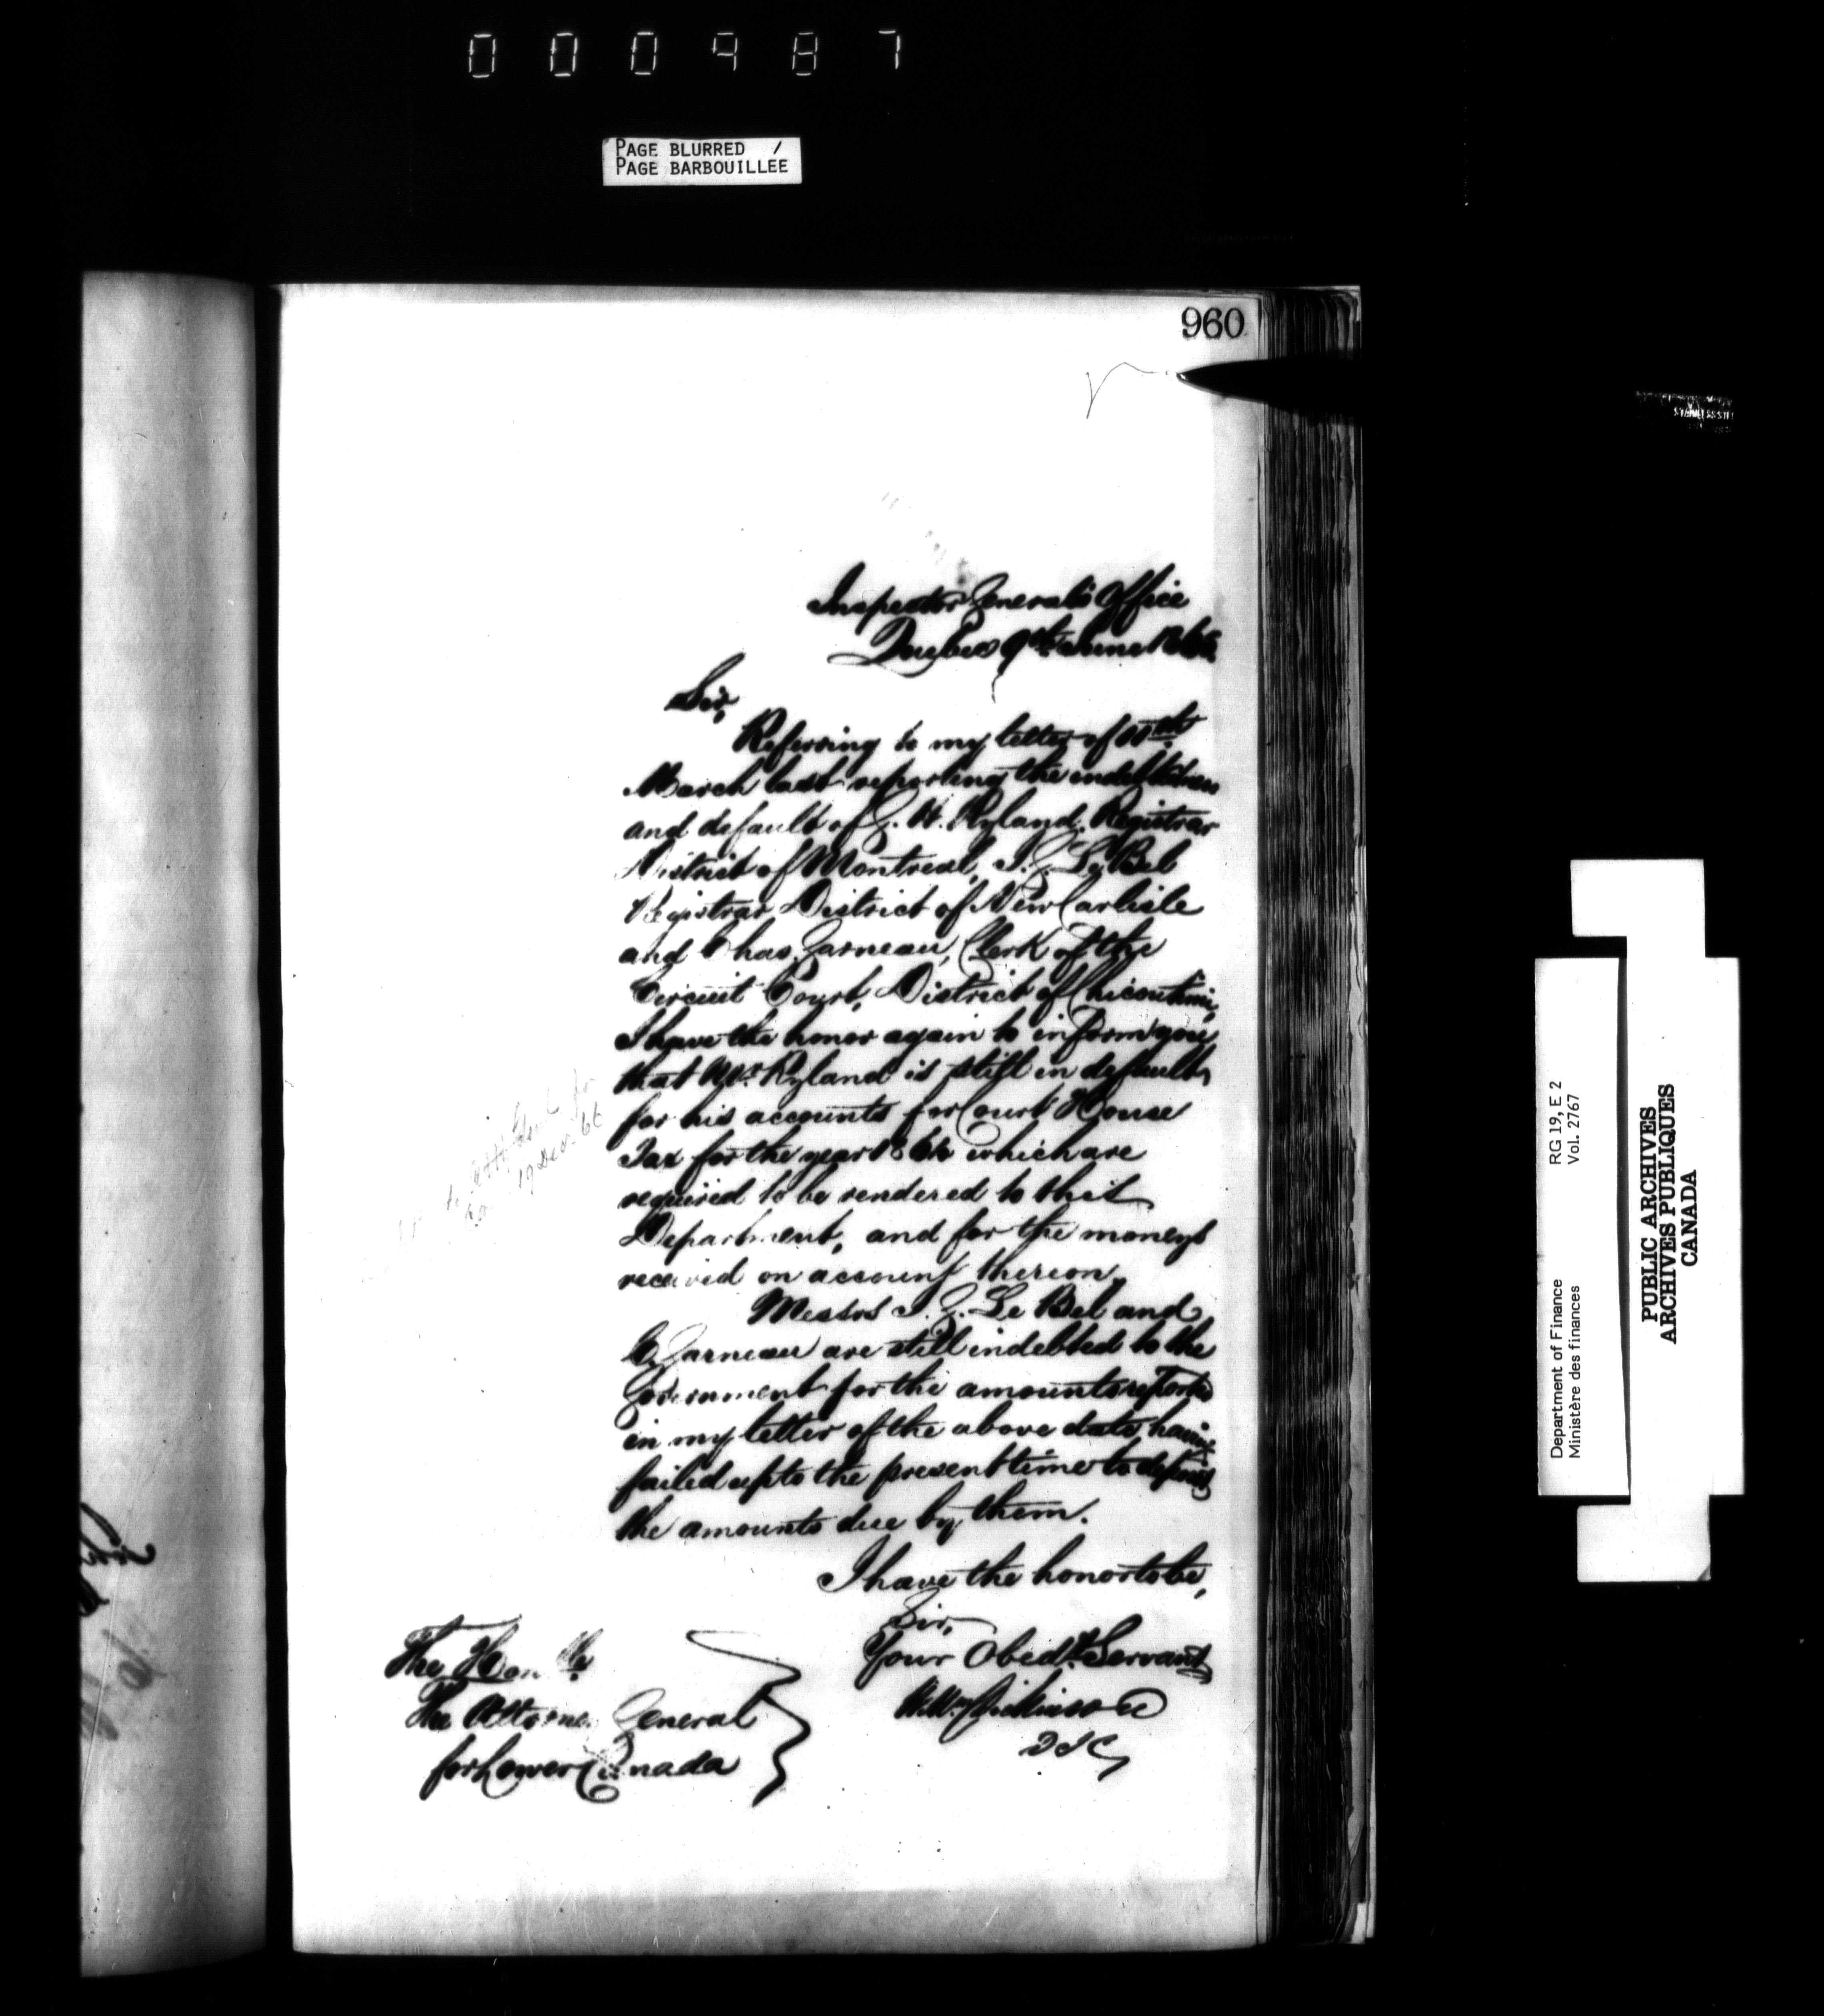 000987
PAGE BLURRED /
PAGE BARBOUILLEE
960
Inspector General's Office
Quebec 9th June 1865
Sir,
Referring to my letter of
March last reporting the indebtedness
and default of G. H. Ryland, Registrar
District of Montreal, J. G. Le Bel
Registrar District of New Carlisle
and Chas. Garneau, Clerk of the
Circuit Court, District of Chicoutimi,
I have the honor again to inform you
that Mr. Ryland is still in default,
for his accounts for Court House
Tax for the year 1864 which are
required to be rendered to this
Department, and for the moneys
received on account thereon.
Messrs J. G. Le Bel and
C. Garneau are still indebted to the
Government for the amounts reported
in my letter of the above date, having
failed up to the present time to deposit
the amounts due by them.
I have the honor to be,
Sir,
Your Obedt. Servant
Wm. Dickinson
D I G
The Honble
The Attorney General
for Lower Canada
19 Dec. 66
Department of Finance RG 19, E 2
Ministère des finances Vol. 2767
PUBLIC ARCHIVES
ARCHIVES PUBLIQUES
CANADA